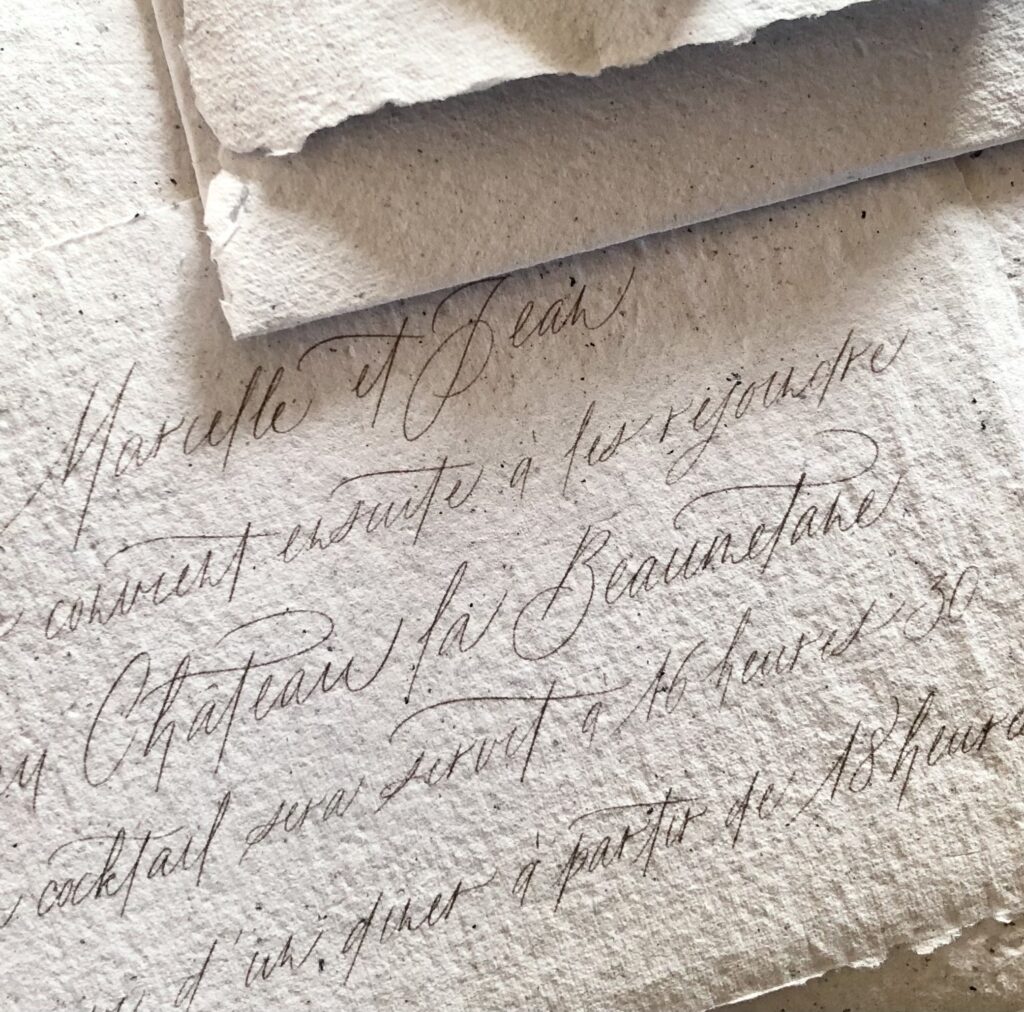 Marcelle et Jean
convient ensuite à les rejoindre
Château la Beaumetane
cocktail sera servit à 16 heures 30
d'un diner à partir de 18 heure